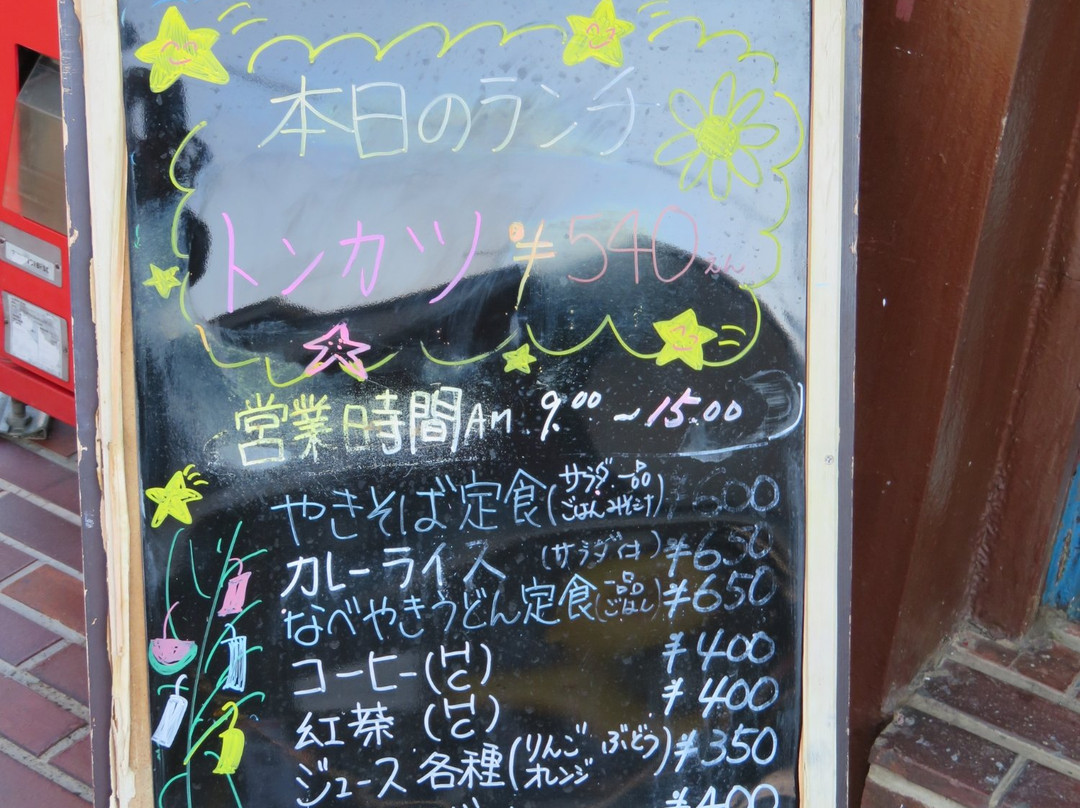 本日のランチ
トンカツ ¥540えん
営業時間 Am 9.00 ~ 15.00
やきそば定食(サラダ 一品 ごはん みそ汁) ¥600
カレーライス (サラダ付) ¥650
なべやきうどん定食(一品 ごはん) ¥650
コーヒー(H C) ¥400
紅茶 (H C) ¥400
ジュース各種(りんご ぶどう オレンジ) ¥350
¥400